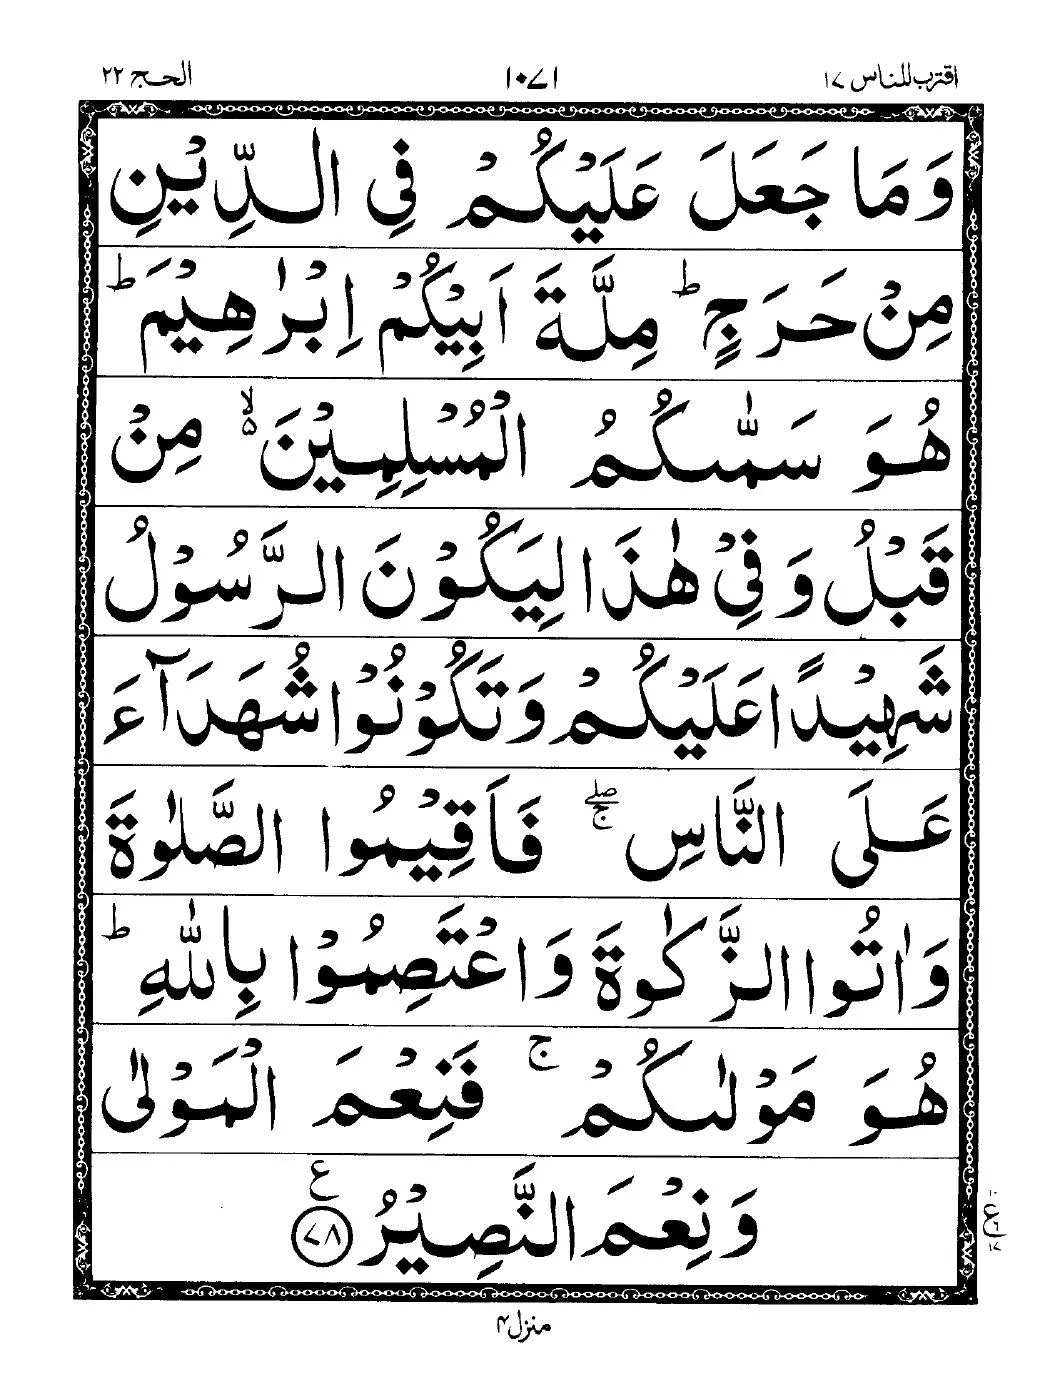 اقترب للناس ١٧ ١٠٧١ الحج ٢٢
وَمَا جَعَلَ عَلَيْكُمْ فِي الدِّيْنِ
مِنْ حَرَجٍ ؕ مِلَّةَ اَبِيْكُمْ اِبْرٰهِيْمَ ؕ
هُوَ سَمّٰىكُمُ الْمُسْلِمِيْنَ ۙ۬ مِنْ
قَبْلُ وَفِيْ هٰذَا لِيَكُوْنَ الرَّسُوْلُ
شَهِيْدًا عَلَيْكُمْ وَتَكُوْنُوْا شُهَدَآءَ
عَلَى النَّاسِ ۖۚ فَاَقِيْمُوا الصَّلٰوةَ
وَاٰتُوا الزَّكٰوةَ وَاعْتَصِمُوْا بِاللّٰهِ ؕ
هُوَ مَوْلٰىكُمْ ۚ فَنِعْمَ الْمَوْلٰى
وَنِعْمَ النَّصِيْرُ ﴿٧٨﴾ ع
منزل ٤